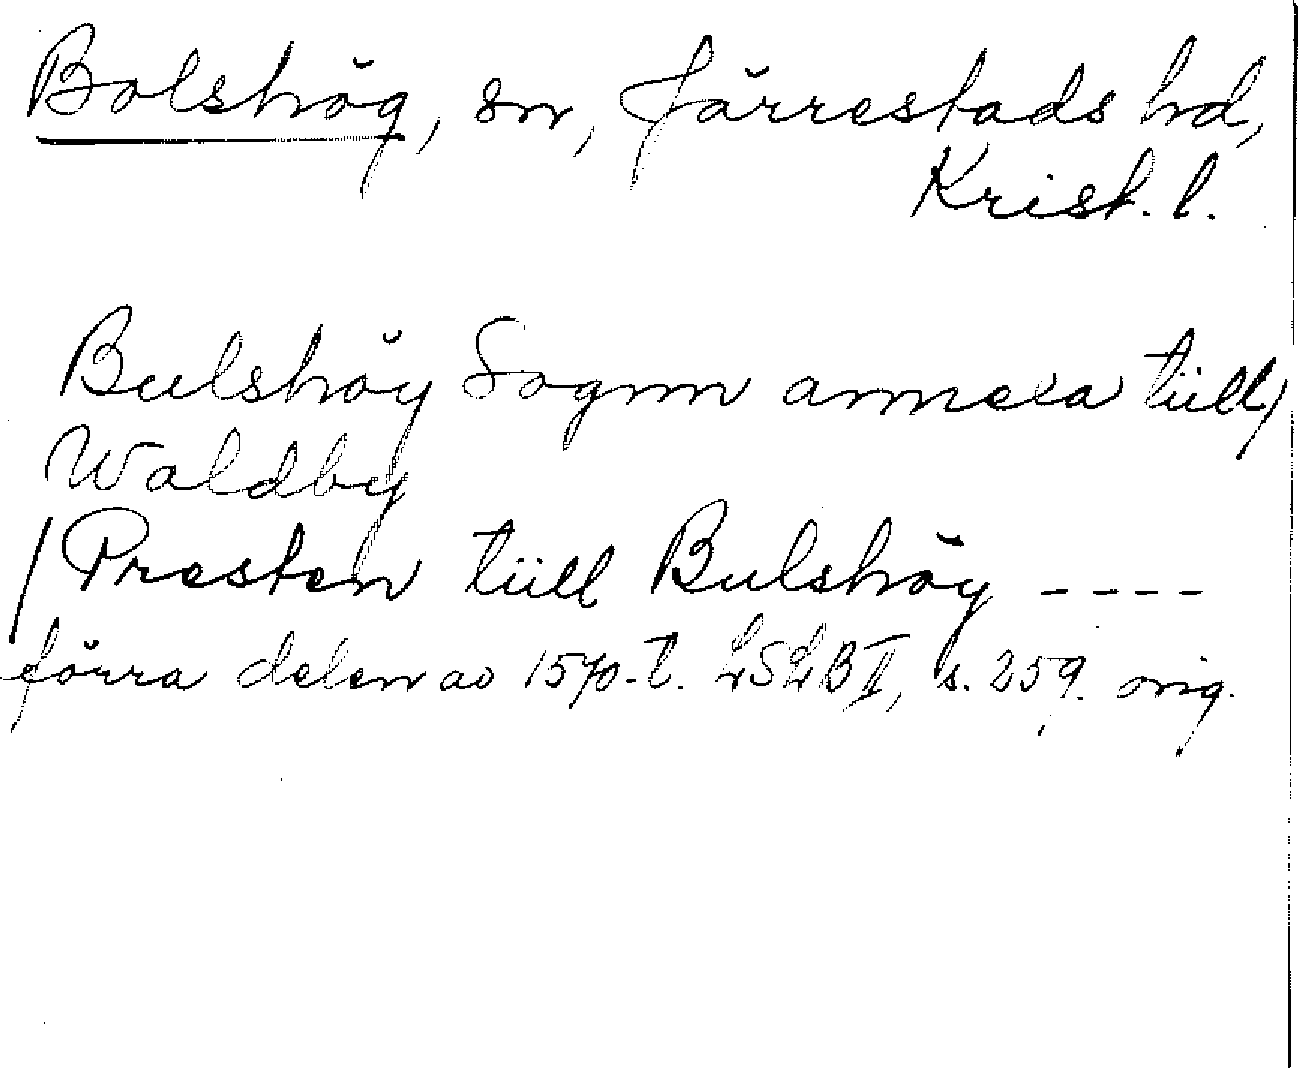 Bolshög, sn, Järrestads hd,
Krist. l.
Bulshöy Sognn annexa tiill/
Waldby
/Presten tiill Bulshöy ----
förra delen av 1570-t. LSLB II, s. 259. orig.